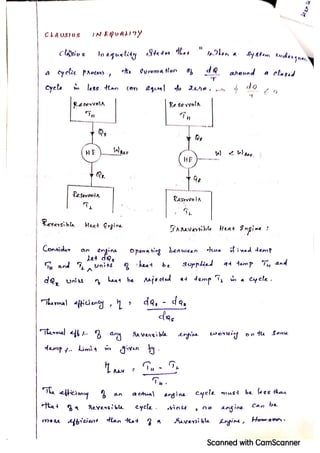 CLAUSIUS INEQUALITY
Clausius Inequality States that " When a System undergoes
a cyclic process, the summation of dQ/T around a closed
cycle is less than (or) equal to zero. ∮ dQ/T ≤ 0
Reservoir Reservoir
TH TH
QS QS
HE WRev HE W < WRev
QR QR
Reservoir Reservoir
TL TL
Reversible Heat Engine Irreversible Heat Engine :
Consider an engine operating between two fixed temp
TH and TL. Let dQs units of heat be supplied at temp TH and
dQR units of heat be Rejected at temp TL in a cycle.
Thermal efficiency, η = dQs - dQR
dQs
Thermal effi of any Reversible engine working on the Same
temp Limit is given by.
ηRev = TH - TL
TH
The efficiency of an actual engine cycle must be less than
that of a Reversible cycle. since, no engine can be
more efficient than that of a Reversible Engine,
Scanned with CamScanner